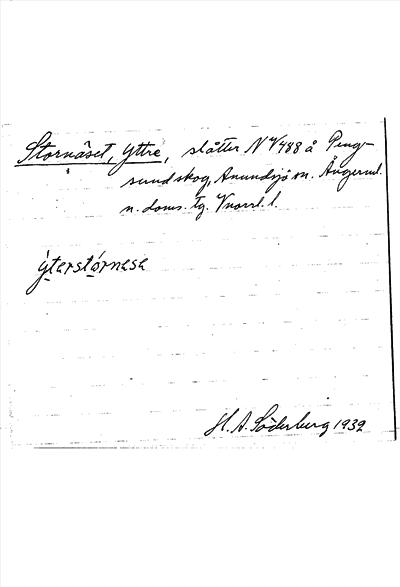 Stornäset, Yttre, slåtter N ⁴/488 å Peng-
sund skog, Anundsjö sn. Ångerml.
n. doms. tg. Vnorrl. l.
ýterstórnesa
H. A. Söderberg 1932